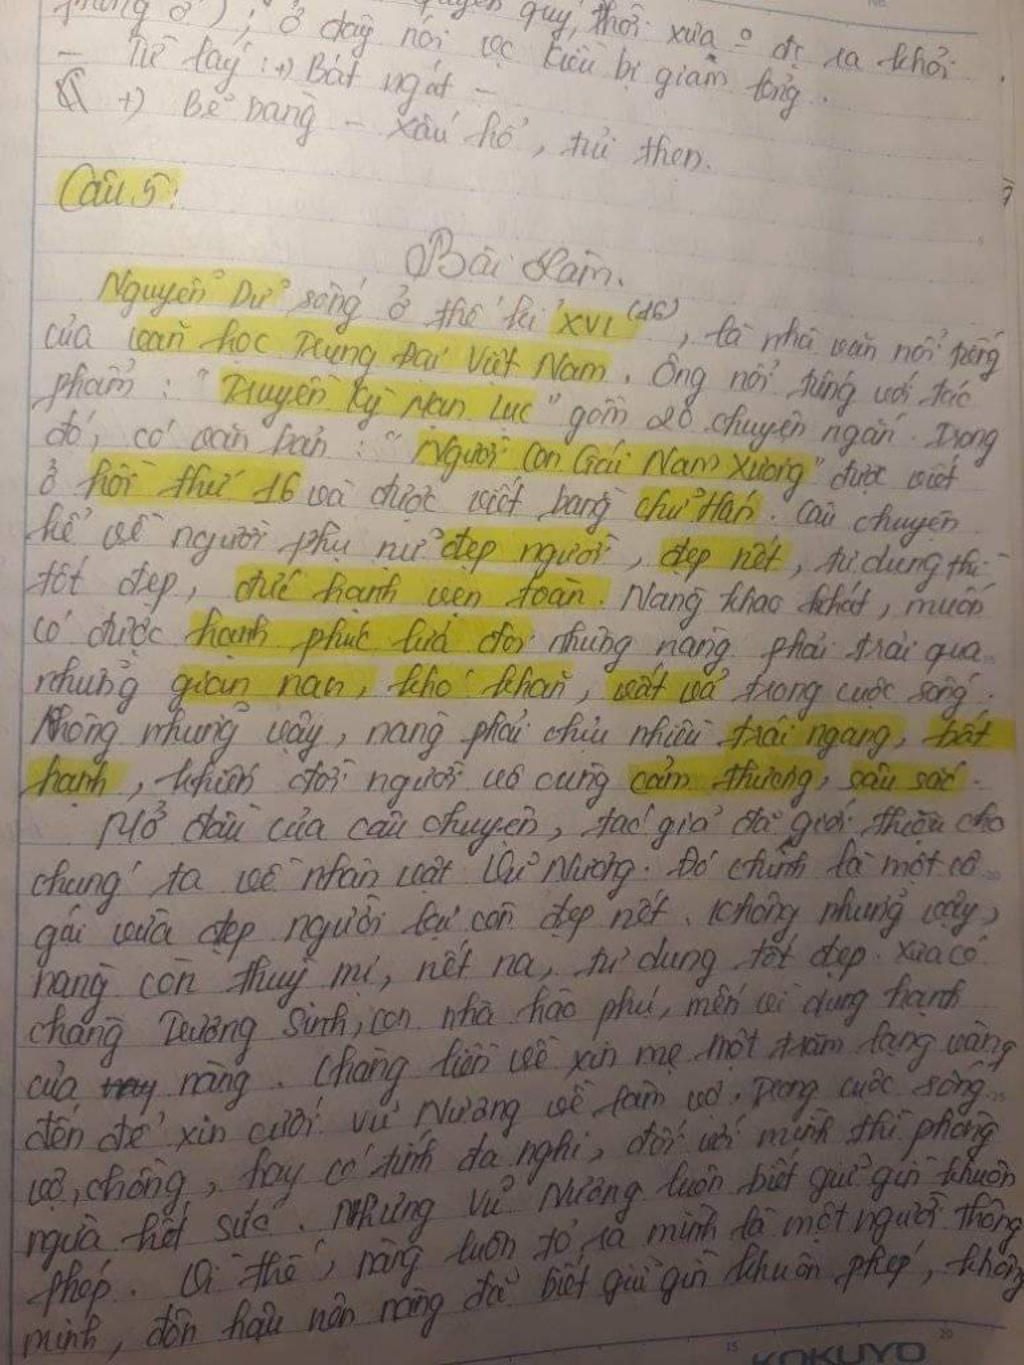 phòng ở) ; ở đây nói về Kiều bị giam lỏng.
quyền quý, thời xưa o đc ra khỏi
- Từ láy : +) Bát ngát -
+) Bẽ bàng - xấu hổ, tủi thẹn.
Câu 5:
Bài Làm.
Nguyễn Dữ sống ở thế kỉ XVI (16), là nhà văn nổi tiếng
của văn học Trung Đại Việt Nam. Ông nổi tiếng với tác
phẩm : "Truyền Kỳ Mạn Lục" gồm 20 chuyện ngắn. Trong
đó, có văn bản : "Người Con Gái Nam Xương" được viết
ở hồi thứ 16 và được viết bằng chữ Hán. Câu chuyện
kể về người phụ nữ đẹp người, đẹp nết, tư dung thì
tốt đẹp, đức hạnh vẹn toàn. Nàng khao khát, muốn
có được hạnh phúc lứa đôi nhưng nàng phải trải qua
những gian nan, khó khăn, vất vả trong cuộc sống.
Không những vậy, nàng phải chịu nhiều trái ngang, bất
hạnh, khiến đời người vô cùng cảm thương, sâu sắc.
Mở đầu của câu chuyện, tác giả đã giới thiệu cho
chúng ta về nhân vật Vũ Nương. Đó chính là một cô
gái vừa đẹp người lại còn đẹp nết. Không những vậy,
nàng còn thuỳ mị, nết na, tư dung tốt đẹp. Xưa có
chàng Trương Sinh, con nhà hào phú, mến vì dung hạnh
của nàng. Chàng liền về xin mẹ một trăm lạng vàng
đến để xin cưới Vũ Nương về làm vợ. Trong cuộc sống
vợ, chồng, hay có tính đa nghi, đối với mình thì phòng
ngừa hết sức. Nhưng Vũ Nương luôn biết giữ gìn khuôn
phép. Vì thế, nàng luôn tỏ ra mình là một người thông
minh, đôn hậu nên nàng đã biết giữ gìn khuôn phép, không
KOKUYO